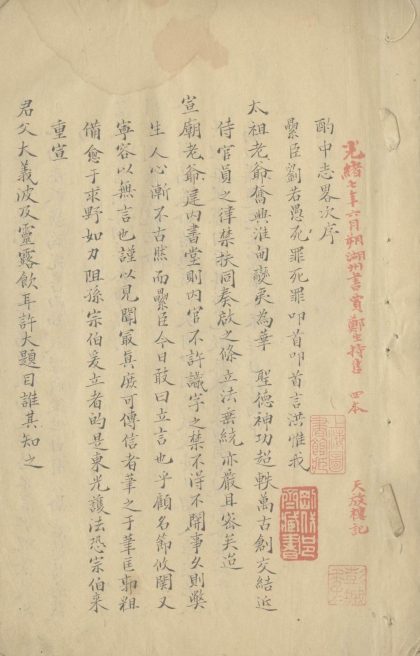 光緒七年六月朔湖州書賈鄭生持售　四本
天放樓記
酌中志畧次序
纍臣劉若愚死罪死罪叩首叩首言洪惟我
太祖老爺奮興淮甸變夷為華　聖德神功超軼萬古創交結近
侍官員之律禁扶同奏啟之條立法垂統亦嚴且密矣迨
宣廟老爺建內書堂則內官不許識字之禁不得不開事久則獘
生人心漸不古然而纍臣今日敢曰立言也乎顧名節攸関又
寧容以無言也謹以見聞最真庶可傳信者筆之于筆匪勑粗
備愈于求野如刀阻孫宗伯爰立者的是東光護法恐宗伯来
重宣
君父大義波及靈露飲耳許大題目誰其知之